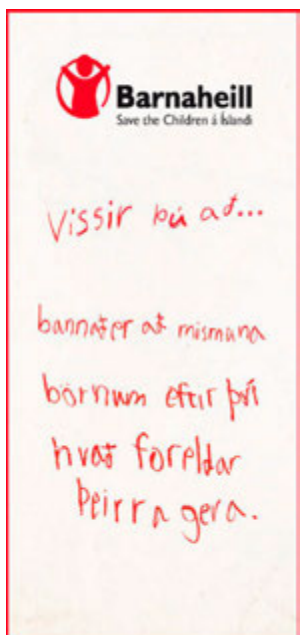 Barnaheill
Save the Children á Íslandi
Vissir þú að...
bannað er að mismuna
börnum eftir því
hvað foreldar
þeirra gera.